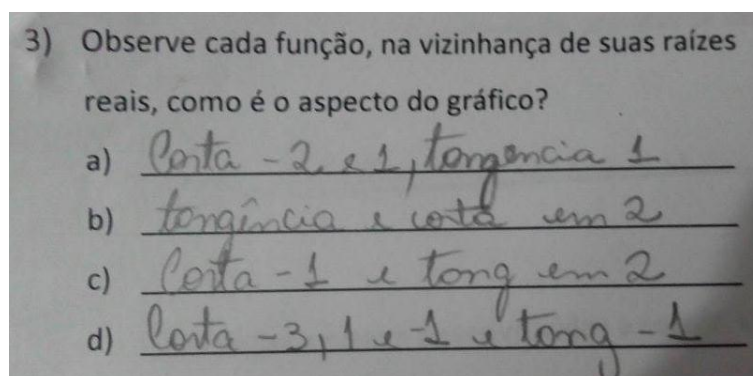 3) Observe cada função, na vizinhança de suas raízes
reais, como é o aspecto do gráfico?
a) Corta -2 e 1, tangencia 1
b) tangência e corta em 2
c) Corta -1 e tang em 2
d) Corta -3, 1 e -1 e tang -1